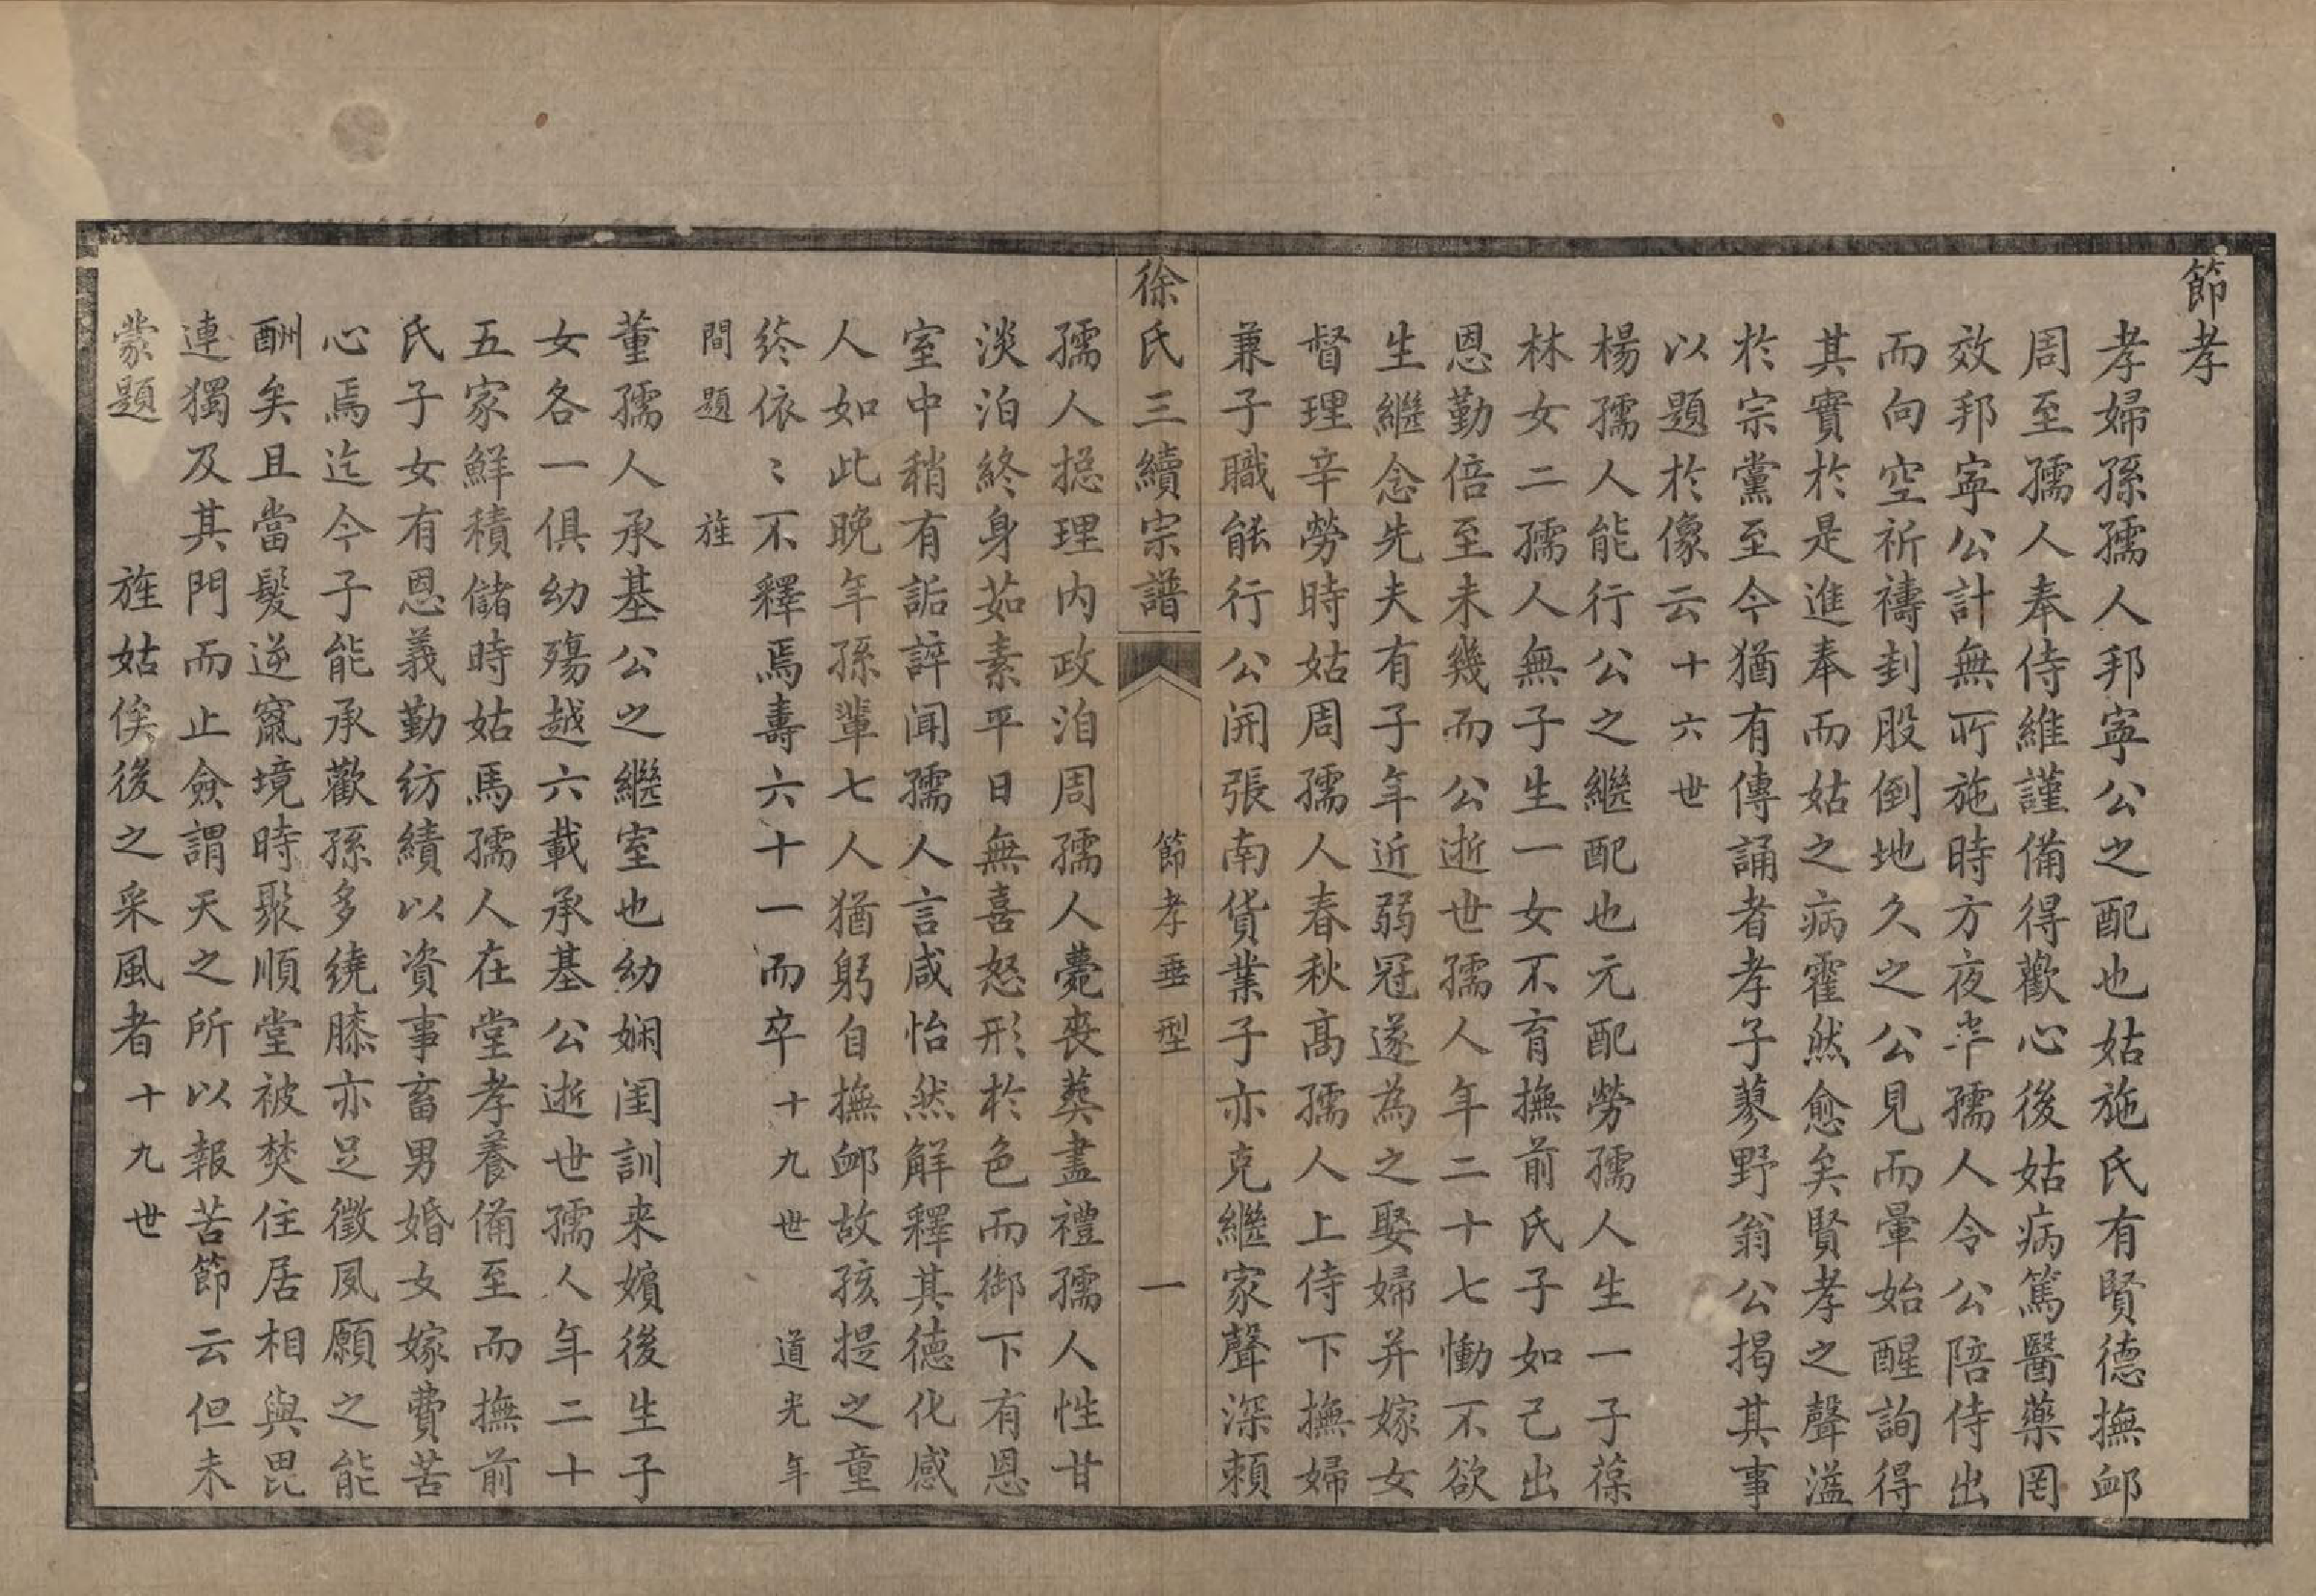 節孝
孝婦孫孺人邦寧公之配也姑施氏有賢德撫卹
周至孺人奉侍維謹備得歡心後姑病篤醫藥罔
效邦寧公計無所施時方夜半孺人令公陪侍出
而向空祈禱刲股倒地久之公見而暈始醒詢得
其實於是進奉而姑之病霍然愈矣賢孝之聲溢
於宗黨至今猶有傳誦者孝子蓼野翁公揭其事
以題於像云十六世
楊孺人能行公之繼配也元配勞孺人生一子葆
林女二孺人無子生一女不育撫前氏子如己出
恩勤倍至未幾而公逝世孺人年二十七慟不欲
生繼念先夫有子年近弱冠遂為之娶婦并嫁女
督理辛勞時姑周孺人春秋高孺人上侍下撫婦
兼子職能行公開張南貨業子亦克繼家聲深賴
徐氏三續宗譜 節孝垂型 一
孺人捴理內政洎周孺人薨喪葬盡禮孺人性甘
淡泊終身茹素平日無喜怒形於色而御下有恩
室中稍有詬誶闻孺人言咸怡然解釋其德化感
人如此晚年孫輩七人猶躬自撫卹故孩提之童
終依〻不釋焉壽六十一而卒十九世 道光年
間題 旌
董孺人承基公之繼室也幼娴闺訓来嬪後生子
女各一俱幼殤越六載承基公逝世孺人年二十
五家鮮積儲時姑馬孺人在堂孝養備至而撫前
氏子女有恩義勤紡績以資事畜男婚女嫁費苦
心焉迄今子能承歡孫多繞膝亦足徵夙願之能
酬矣且當髮逆竄境時聚順堂被焚住居相與毘
連獨及其門而止僉謂天之所以報苦節云但未
蒙題 旌姑俟後之采風者十九世